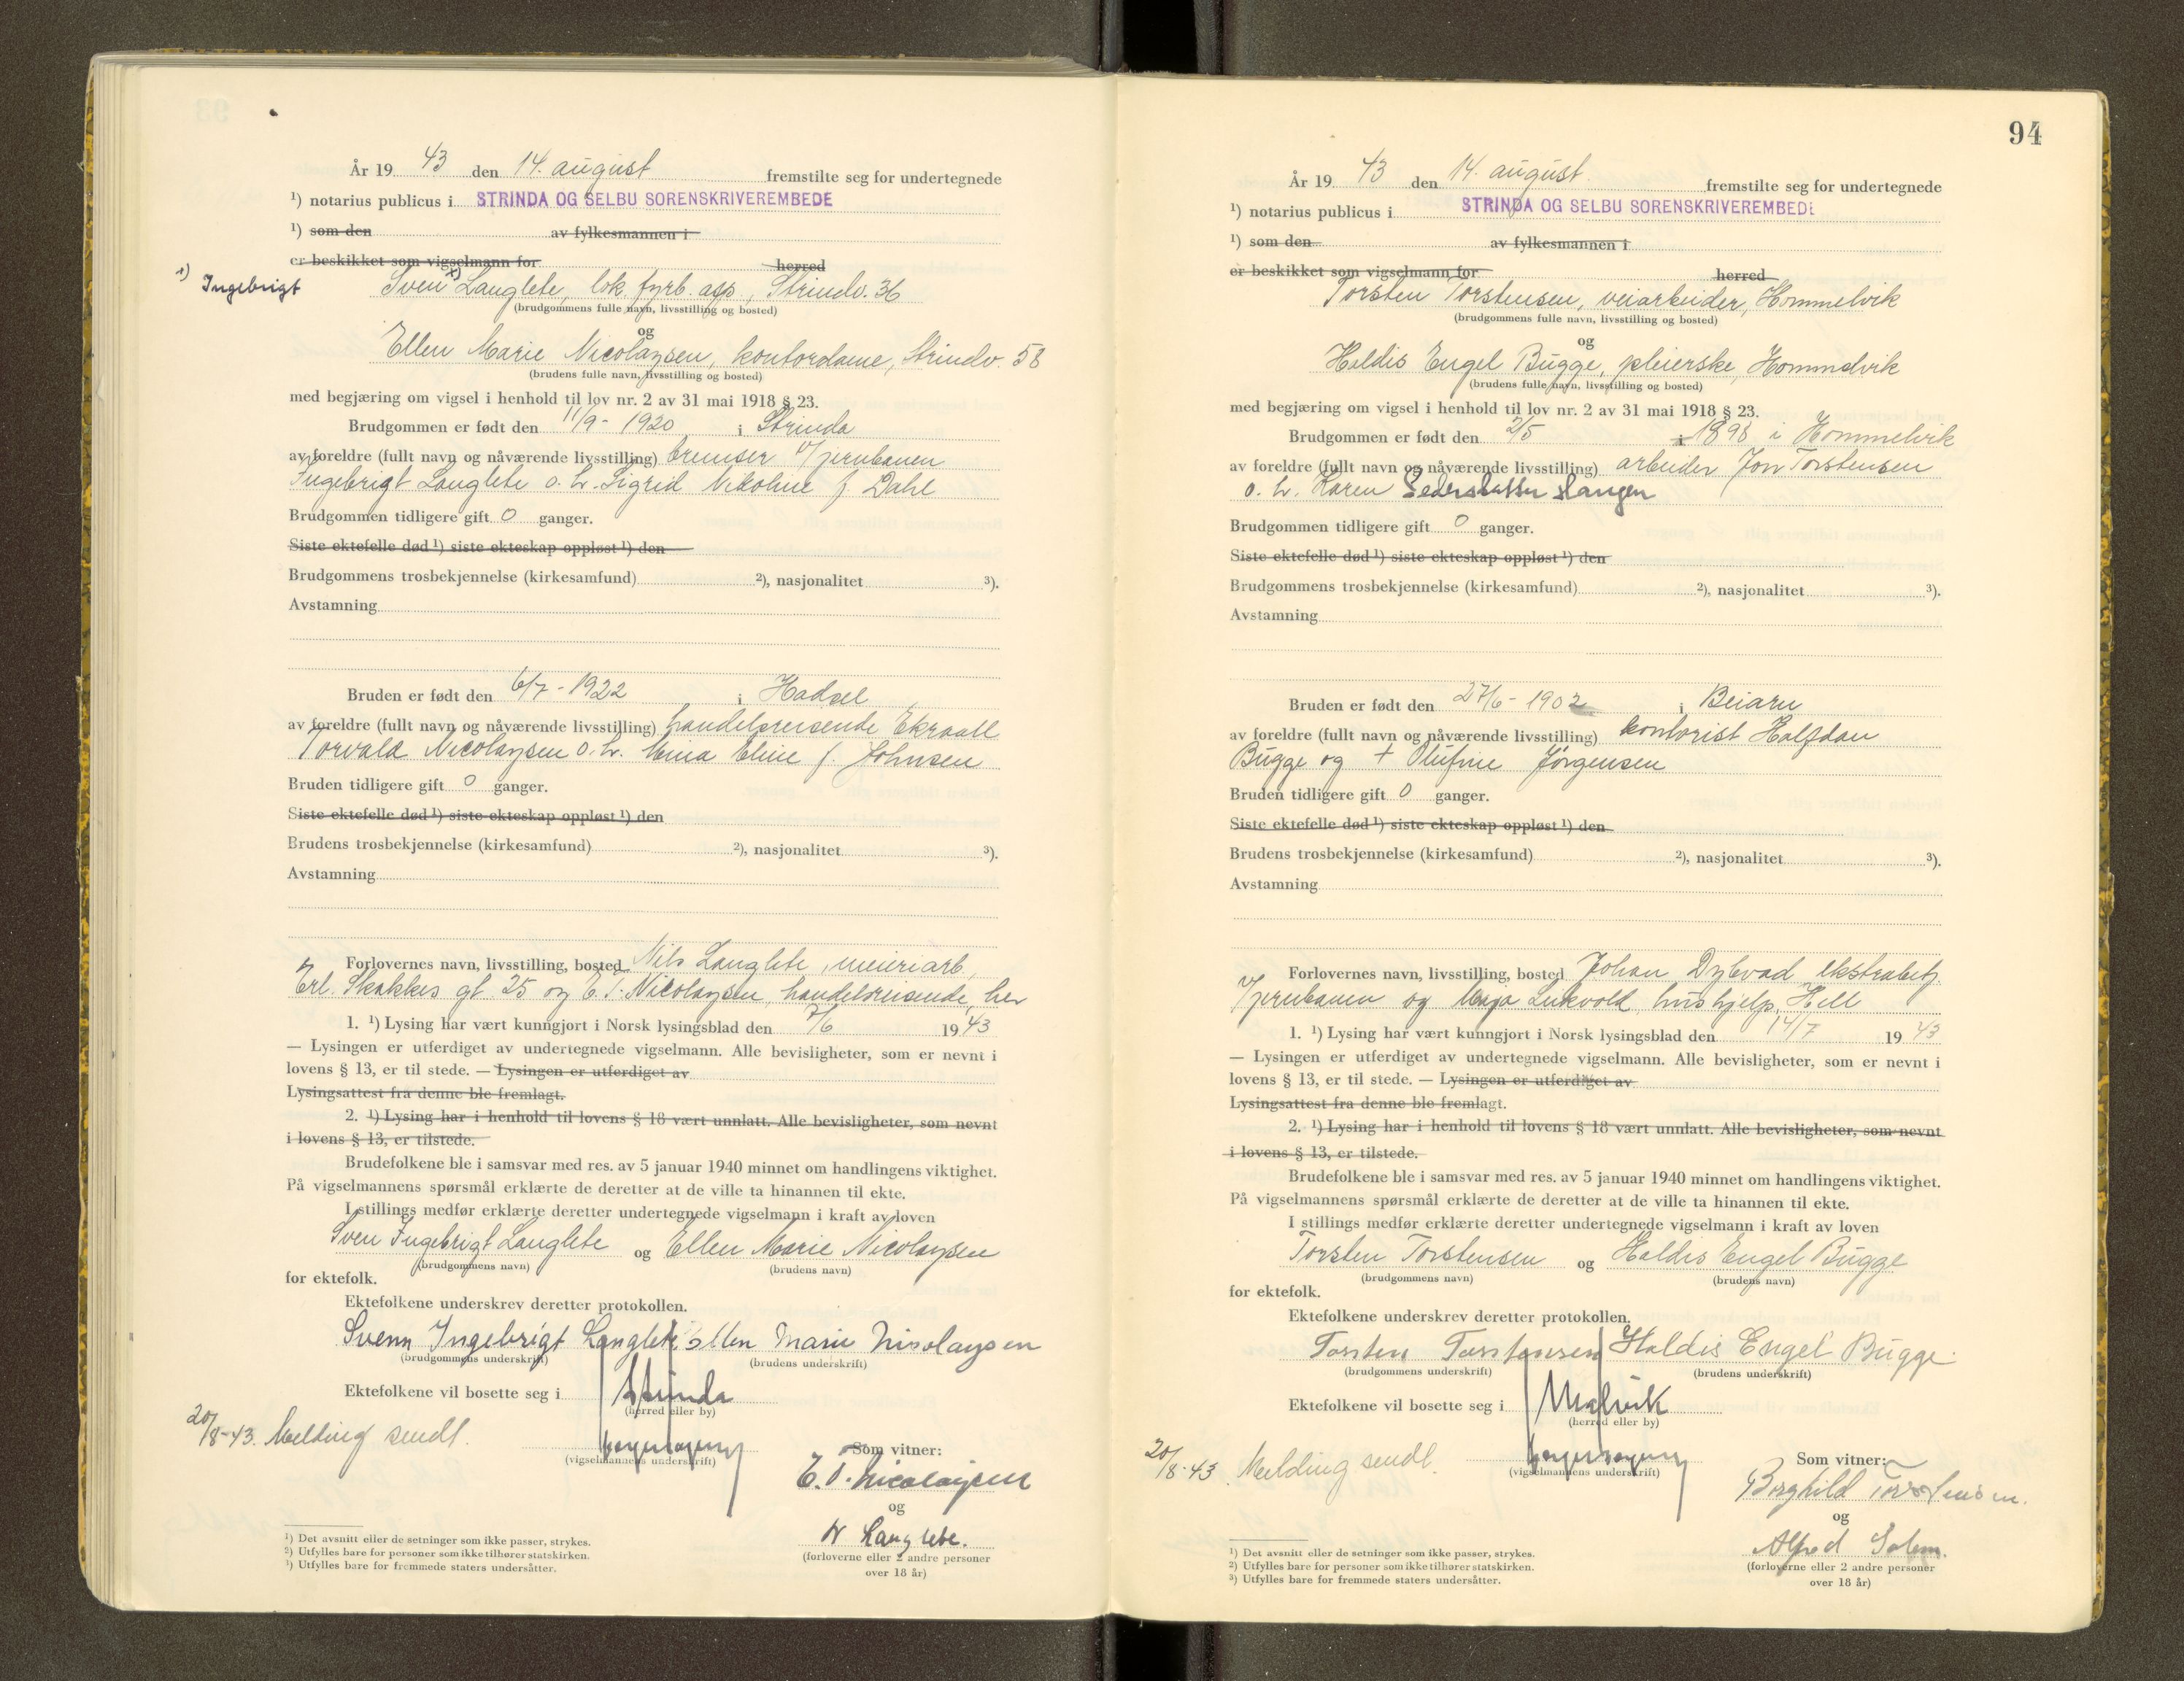 År 19 43 den 14. august fremstilte seg for undertegnede
¹) notarius publicus i STRINDA OG SELBU SORENSKRIVEREMBEDE
¹) som den av fylkesmannen i
er beskikket som vigselmann for herred
¹) Ingebrigt
Sven x) Langlete, lok. fyrb. asp., Strindv. 36
(brudgommens fulle navn, livsstilling og bosted)
og
Ellen Marie Nicolaysen, kontordame, Strindv. 58
(brudens fulle navn, livsstilling og bosted)
med begjæring om vigsel i henhold til lov nr. 2 av 31 mai 1918 § 23.
Brudgommen er født den 11/9 - 1920 i Strinda
av foreldre (fullt navn og nåværende livsstilling) bremser v/jernbanen
Ingebrigt Langlete o. h. Sigrid Nikoline f. Dahl
Brudgommen tidligere gift 0 ganger.
Siste ektefelle død ¹) siste ekteskap oppløst ¹) den
Brudgommens trosbekjennelse (kirkesamfund) ²), nasjonalitet ³).
Avstamning
Bruden er født den 6/7 - 1922 i Hadsel
av foreldre (fullt navn og nåværende livsstilling) handelsreisende
Torvald Nicolaysen o. h. Eline f. Johnsen
Bruden tidligere gift 0 ganger.
Siste ektefelle død ¹) siste ekteskap oppløst ¹) den
Brudens trosbekjennelse (kirkesamfund) ²), nasjonalitet ³).
Avstamning
Forlovernes navn, livsstilling, bosted Nils Langlete, meieriarb.,
Erl. Skakkes gt. 25 og E. T. Nicolaysen, handelsreisende, her
1. ¹) Lysing har vært kunngjort i Norsk lysingsblad den 7/6 1943
— Lysingen er utferdiget av undertegnede vigselmann. Alle bevisligheter, som er nevnt i
lovens § 13, er til stede. — Lysingen er utferdiget av
Lysingsattest fra denne ble fremlagt.
2. ¹) Lysing har i henhold til lovens § 18 vært unnlatt. Alle bevisligheter, som nevnt
i lovens § 13, er tilstede.
Brudefolkene ble i samsvar med res. av 5 januar 1940 minnet om handlingens viktighet.
På vigselmannens spørsmål erklærte de deretter at de ville ta hinannen til ekte.
I stillings medfør erklærte deretter undertegnede vigselmann i kraft av loven
Sven Ingebrigt Langlete og Ellen Marie Nicolaysen
(brudgommens navn) (brudens navn)
for ektefolk.
Ektefolkene underskrev deretter protokollen.
Svenn Ingebrigt Langlete Ellen Marie Nicolaysen
(brudgommens underskrift) (brudens underskrift)
Ektefolkene vil bosette seg i Strinda
(herred eller by)
20/8-43. Melding sendt.
(vigselmannens underskrift)
Som vitner:
E. T. Nicolaysen
og
N Langlete.
(forloverne eller 2 andre personer
over 18 år)
¹) Det avsnitt eller de setninger som ikke passer, strykes.
²) Utfylles bare for personer som ikke tilhører statskirken.
³) Utfylles bare for fremmede staters undersåtter.
94
År 19 43 den 14. august fremstilte seg for undertegnede
¹) notarius publicus i STRINDA OG SELBU SORENSKRIVEREMBEDE
¹) som den av fylkesmannen i
er beskikket som vigselmann for herred
Torsten Torstensen, veiarbeider, Hommelvik
(brudgommens fulle navn, livsstilling og bosted)
og
Haldis Engel Bugge, pleierske, Hommelvik
(brudens fulle navn, livsstilling og bosted)
med begjæring om vigsel i henhold til lov nr. 2 av 31 mai 1918 § 23.
Brudgommen er født den 2/5 1898 i Hommelvik
av foreldre (fullt navn og nåværende livsstilling) arbeider Jon Torstensen
o. h. Karen
Brudgommen tidligere gift 0 ganger.
Siste ektefelle død ¹) siste ekteskap oppløst ¹) den
Brudgommens trosbekjennelse (kirkesamfund) ²), nasjonalitet ³).
Avstamning
Bruden er født den 27/6 - 1902 i Beiarn
av foreldre (fullt navn og nåværende livsstilling) kontorist Halfdan
Bugge og + Olufine Jørgensen
Bruden tidligere gift 0 ganger.
Siste ektefelle død ¹) siste ekteskap oppløst ¹) den
Brudens trosbekjennelse (kirkesamfund) ²), nasjonalitet ³).
Avstamning
Forlovernes navn, livsstilling, bosted Johan Dybvad ekstrabetj.
v/jernbanen og hushjelp, Hell
1. ¹) Lysing har vært kunngjort i Norsk lysingsblad den 14/7 19 43
— Lysingen er utferdiget av undertegnede vigselmann. Alle bevisligheter, som er nevnt i
lovens § 13, er til stede. — Lysingen er utferdiget av
Lysingsattest fra denne ble fremlagt.
2. ¹) Lysing har i henhold til lovens § 18 vært unnlatt. Alle bevisligheter, som nevnt
i lovens § 13, er tilstede.
Brudefolkene ble i samsvar med res. av 5 januar 1940 minnet om handlingens viktighet.
På vigselmannens spørsmål erklærte de deretter at de ville ta hinannen til ekte.
I stillings medfør erklærte deretter undertegnede vigselmann i kraft av loven
Torsten Torstensen og Haldis Engel Bugge
(brudgommens navn) (brudens navn)
for ektefolk.
Ektefolkene underskrev deretter protokollen.
Torsten Torstensen Haldis Engel Bugge
(brudgommens underskrift) (brudens underskrift)
Ektefolkene vil bosette seg i Malvik
(herred eller by)
20/8-43. Melding sendt.
(vigselmannens underskrift)
Som vitner:
Borghild Torstensen.
og
Alfred Solem.
(forloverne eller 2 andre personer
over 18 år)
¹) Det avsnitt eller de setninger som ikke passer, strykes.
²) Utfylles bare for personer som ikke tilhører statskirken.
³) Utfylles bare for fremmede staters undersåtter.